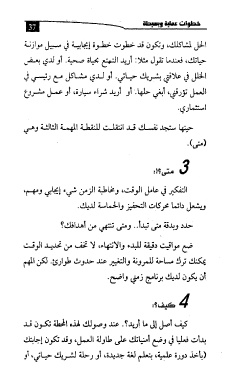 خطوات عملية وبسيطة
37
الحل لمشاكلك، وتكون قد خطوت خطوة إيجابية في سبيل موازنة
حياتك، فعندما تقول مثلًا: أريد التمتع بحياة صحية. أو لدي بعض
الخلل في علاقتي بشريك حياتي. أو لدي مشاكل مع رئيسي في
العمل تؤرقني، أبغي حلها. أو أريد شراء سيارة، أو عمل مشروع
استثماري.
حينها ستجد نفسك قد انتقلت للنقطة المهمة الثالثة وهي
(متى).
3 متى؟!:
التفكير في عامل الوقت، ومخاطبة الزمن شيء إيجابي ومهم،
ويشعل دائما محركات التحفيز والحماسة لديك.
حدد وبدقة متى تبدأ.. ومتى تنتهي من أهدافك؟
ضع مواقيت دقيقة للبدء والانتهاء، لا تخف من تحديد الوقت
يمكنك ترك مساحة للمرونة والتغيير عند حدوث طوارئ. لكن المهم
أن يكون لديك برنامج زمني واضح.
4 كيف؟:
كيف أصل إلى ما أريد؟. عند وصولك لهذه المحطة تكون قد
بدأت فعليا في وضع أمنياتك على طاولة العمل، وقد تكون إجابتك
(بأخذ دورة علمية، بتعلم لغة جديدة، أو رحلة لشريك حياتي، أو